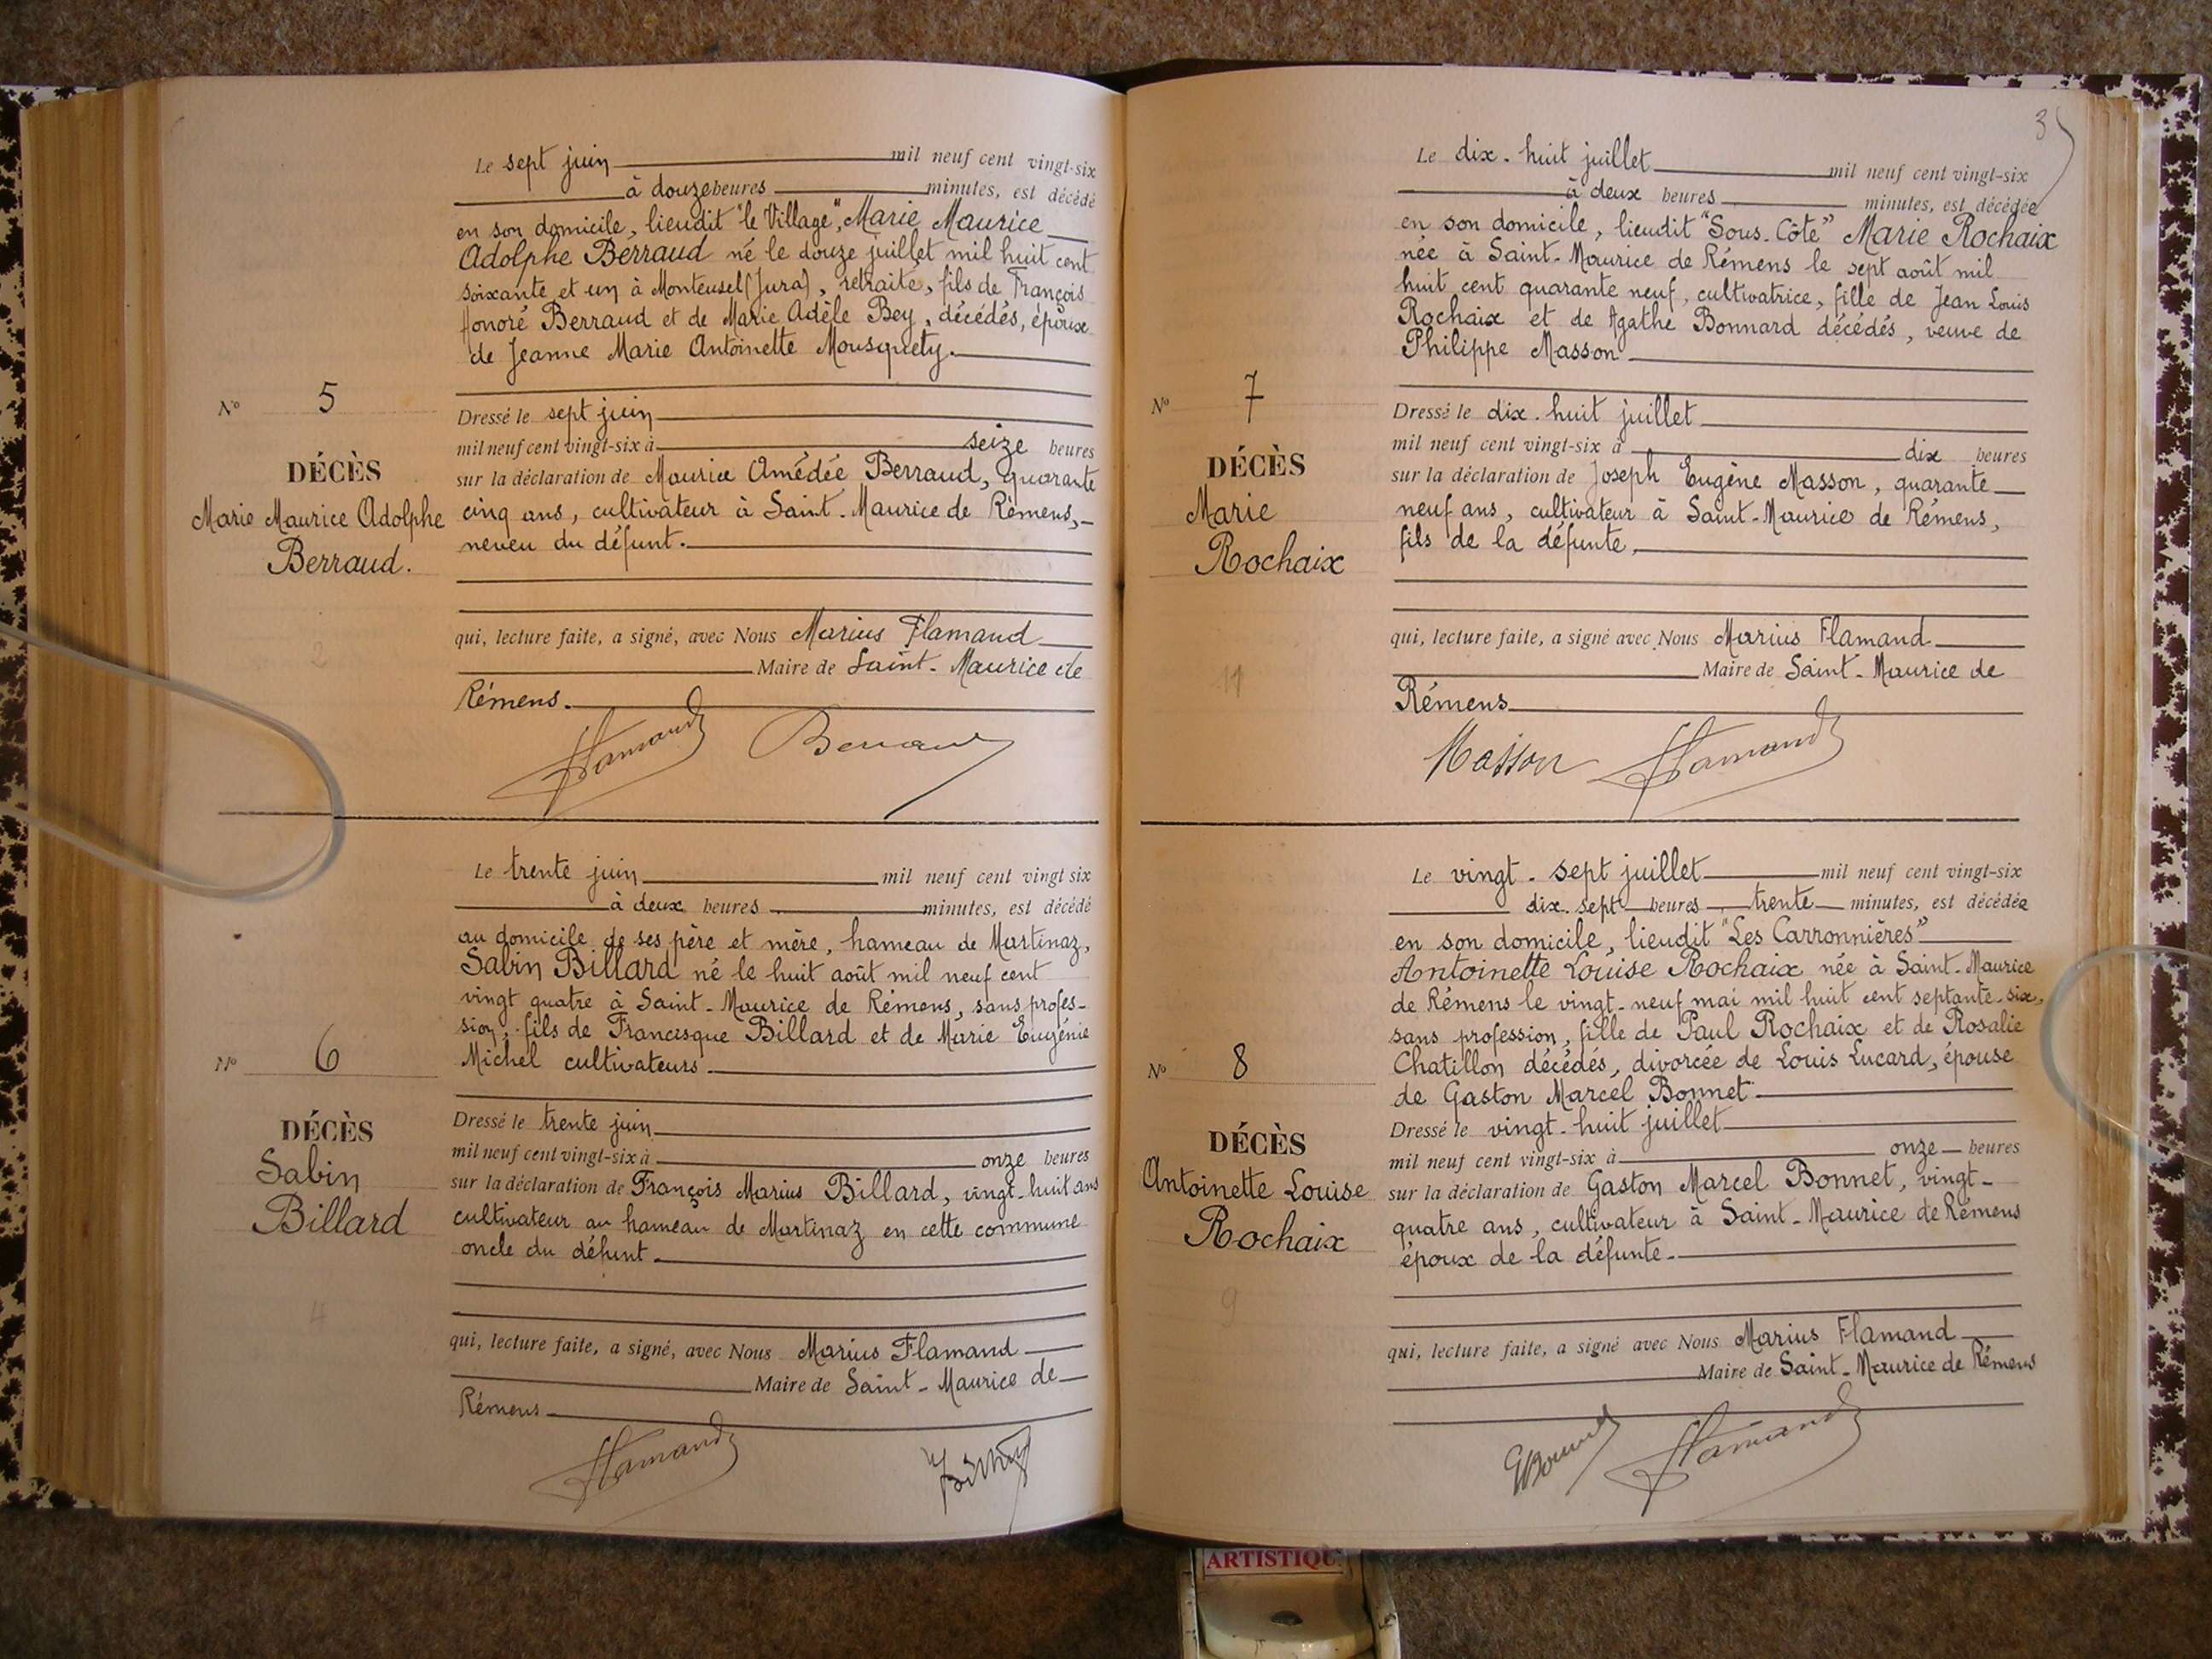 Le sept juin mil neuf cent vingt-six
à douze heures minutes, est décédé
en son domicile, lieudit "le Village", Marie Maurice
Adolphe Berraud né le douze juillet mil huit cent
soixante et un à Monteusel (Jura), retraité, fils de François
Honoré Berraud et de Marie Adèle Bey, décédés, époux
de Jeanne Marie Antoinette Mousquety.
N° 5
Dressé le sept juin
mil neuf cent vingt-six à seize heures
DÉCÈS
sur la déclaration de Maurice Amédée Berraud, quarante
Marie Maurice Adolphe
cinq ans, cultivateur à Saint-Maurice de Rémens,
Berraud.
neveu du défunt.
qui, lecture faite, a signé, avec Nous Marius Flamand
Maire de Saint-Maurice de
Rémens.
Flamand Berraud
Le trente juin mil neuf cent vingt six
à deux heures minutes, est décédé
au domicile de ses père et mère, hameau de Martinaz,
Sabin Billard né le huit août mil neuf cent
vingt quatre à Saint-Maurice de Rémens, sans profes-
sion, fils de Francisque Billard et de Marie Eugénie
N° 6
Michel cultivateurs.
DÉCÈS
Dressé le trente juin
mil neuf cent vingt-six à onze heures
Sabin
sur la déclaration de François Marius Billard, vingt-huit ans
Billard
cultivateur au hameau de Martinaz en cette commune
oncle du défunt.
qui, lecture faite, a signé, avec Nous Marius Flamand
Maire de Saint-Maurice de
Rémens
Flamand
3
Le dix-huit juillet mil neuf cent vingt-six
à deux heures minutes, est décédée
en son domicile, lieudit "Sous-Côte" Marie Rochaix
née à Saint-Maurice de Rémens le sept août mil
huit cent quarante neuf, cultivatrice, fille de Jean Louis
Rochaix et de Agathe Bonnard décédés, veuve de
Philippe Masson
N° 7
Dressé le dix-huit juillet
mil neuf cent vingt-six à dix heures
DÉCÈS
sur la déclaration de Joseph Eugène Masson, quarante
Marie
neuf ans, cultivateur à Saint-Maurice de Rémens,
Rochaix
fils de la défunte,
qui, lecture faite, a signé avec Nous Marius Flamand
11
Maire de Saint-Maurice de
Rémens
Masson Flamand
Le vingt-sept juillet mil neuf cent vingt-six
dix-sept heures trente minutes, est décédée
en son domicile, lieudit "Les Carronnières"
Antoinette Louise Rochaix née à Saint-Maurice
de Rémens le vingt-neuf mai mil huit cent septante-six,
sans profession, fille de Paul Rochaix et de Rosalie
N° 8
Chatillon décédés, divorcée de Louis Lucard, épouse
de Gaston Marcel Bonnet
DÉCÈS
Dressé le vingt-huit juillet
mil neuf cent vingt-six à onze heures
Antoinette Louise
sur la déclaration de Gaston Marcel Bonnet, vingt-
Rochaix
quatre ans, cultivateur à Saint-Maurice de Rémens
époux de la défunte.
9
qui, lecture faite, a signé avec Nous Marius Flamand
Maire de Saint-Maurice de Rémens
GBonnet Flamand
ARTISTIQU